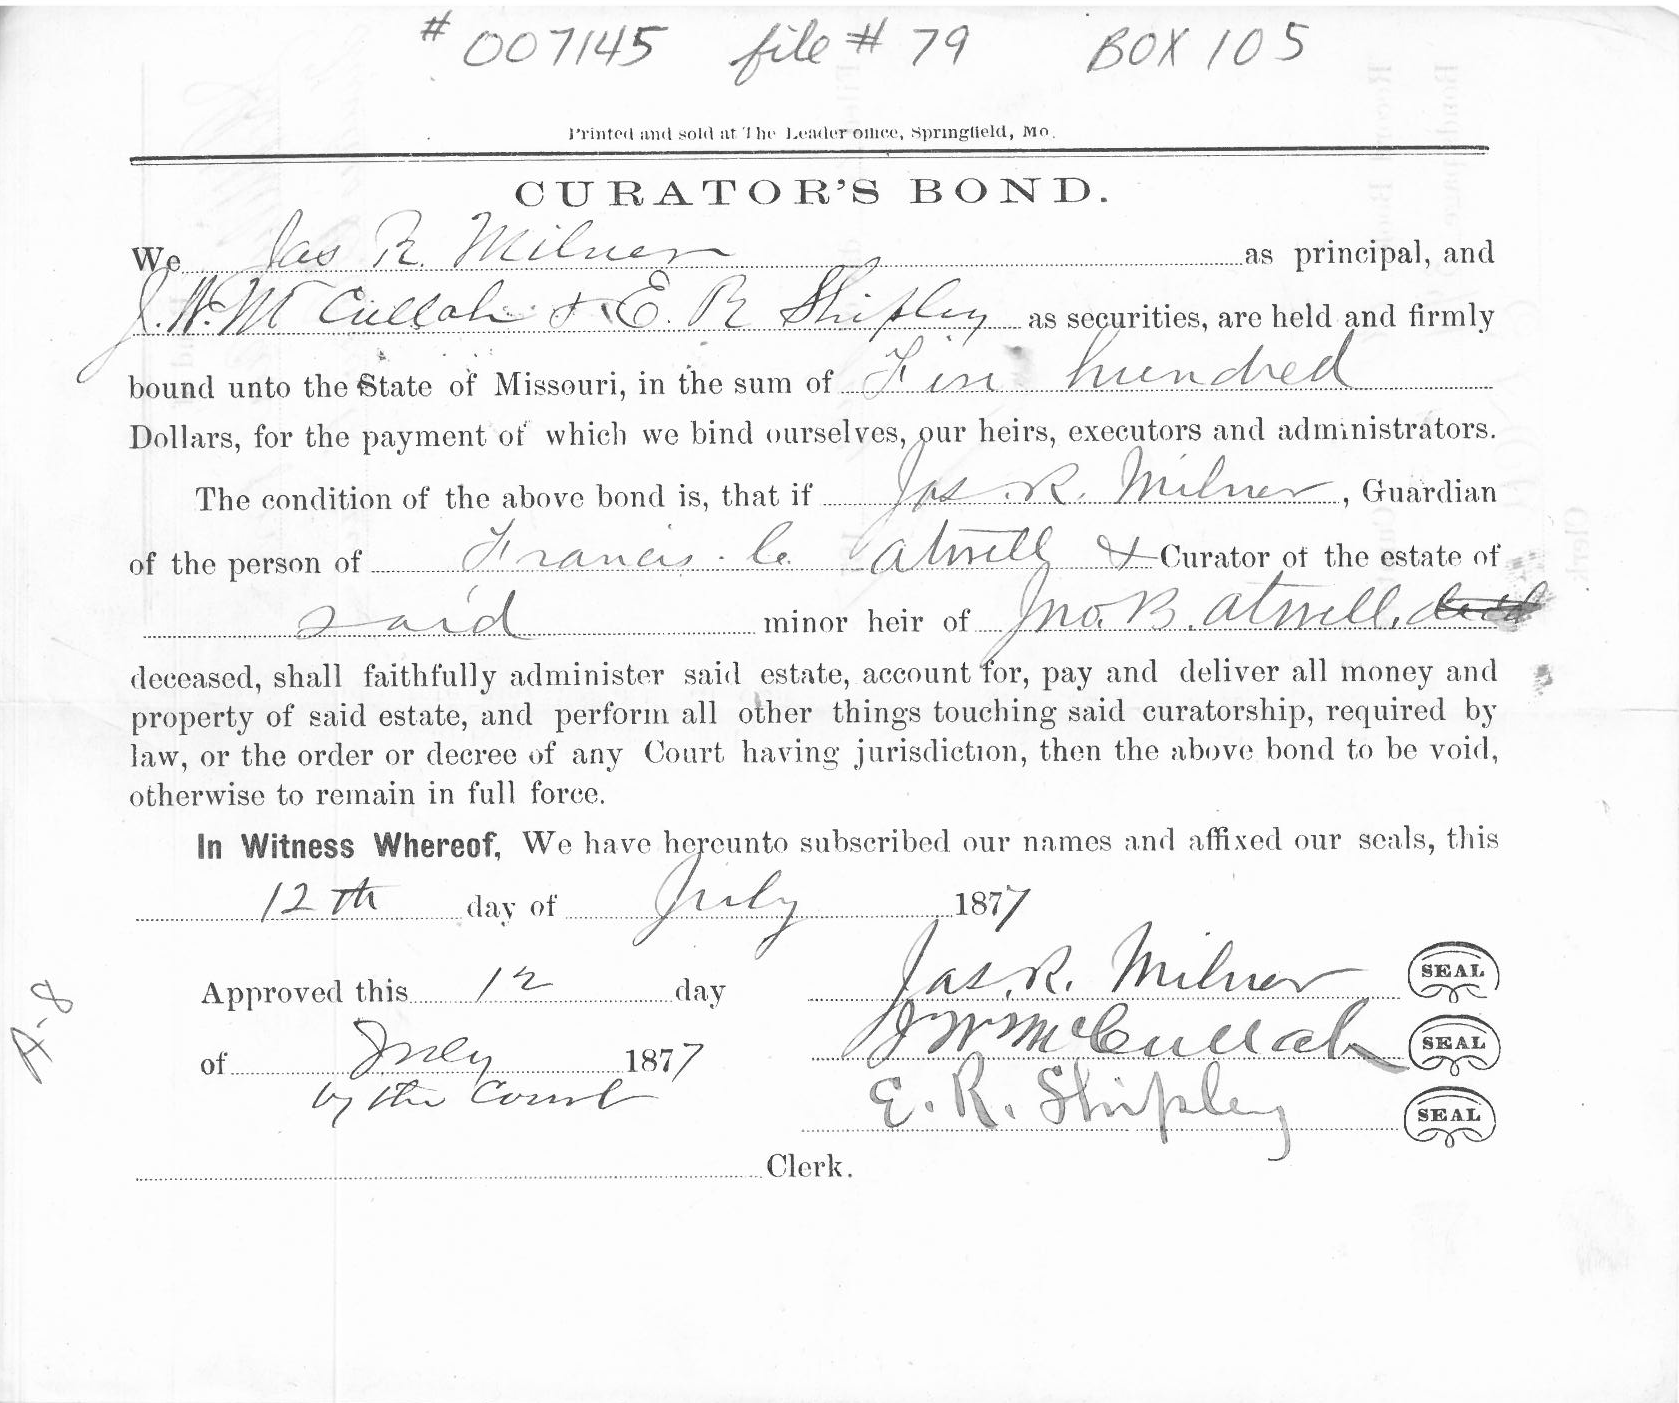 # 007145 file # 79 BOX 105
Printed and sold at The Leader office, Springfield, Mo.
CURATOR'S BOND.
We Jas R. Milner as principal, and
J. W. McCullah & E. R Shipley as securities, are held and firmly
bound unto the State of Missouri, in the sum of Five hundred
Dollars, for the payment of which we bind ourselves, our heirs, executors and administrators.
The condition of the above bond is, that if Jas. R. Milner, Guardian
of the person of Francis C. Atwell & Curator of the estate of
said minor heir of Jno. B. Atwell, decd
deceased, shall faithfully administer said estate, account for, pay and deliver all money and
property of said estate, and perform all other things touching said curatorship, required by
law, or the order or decree of any Court having jurisdiction, then the above bond to be void,
otherwise to remain in full force.
In Witness Whereof, We have hereunto subscribed our names and affixed our seals, this
12th day of July 1877
Approved this 12 day Jas. R. Milner SEAL
of July 1877 J W McCullah SEAL
by the Court E. R. Shipley SEAL
Clerk.
A-8